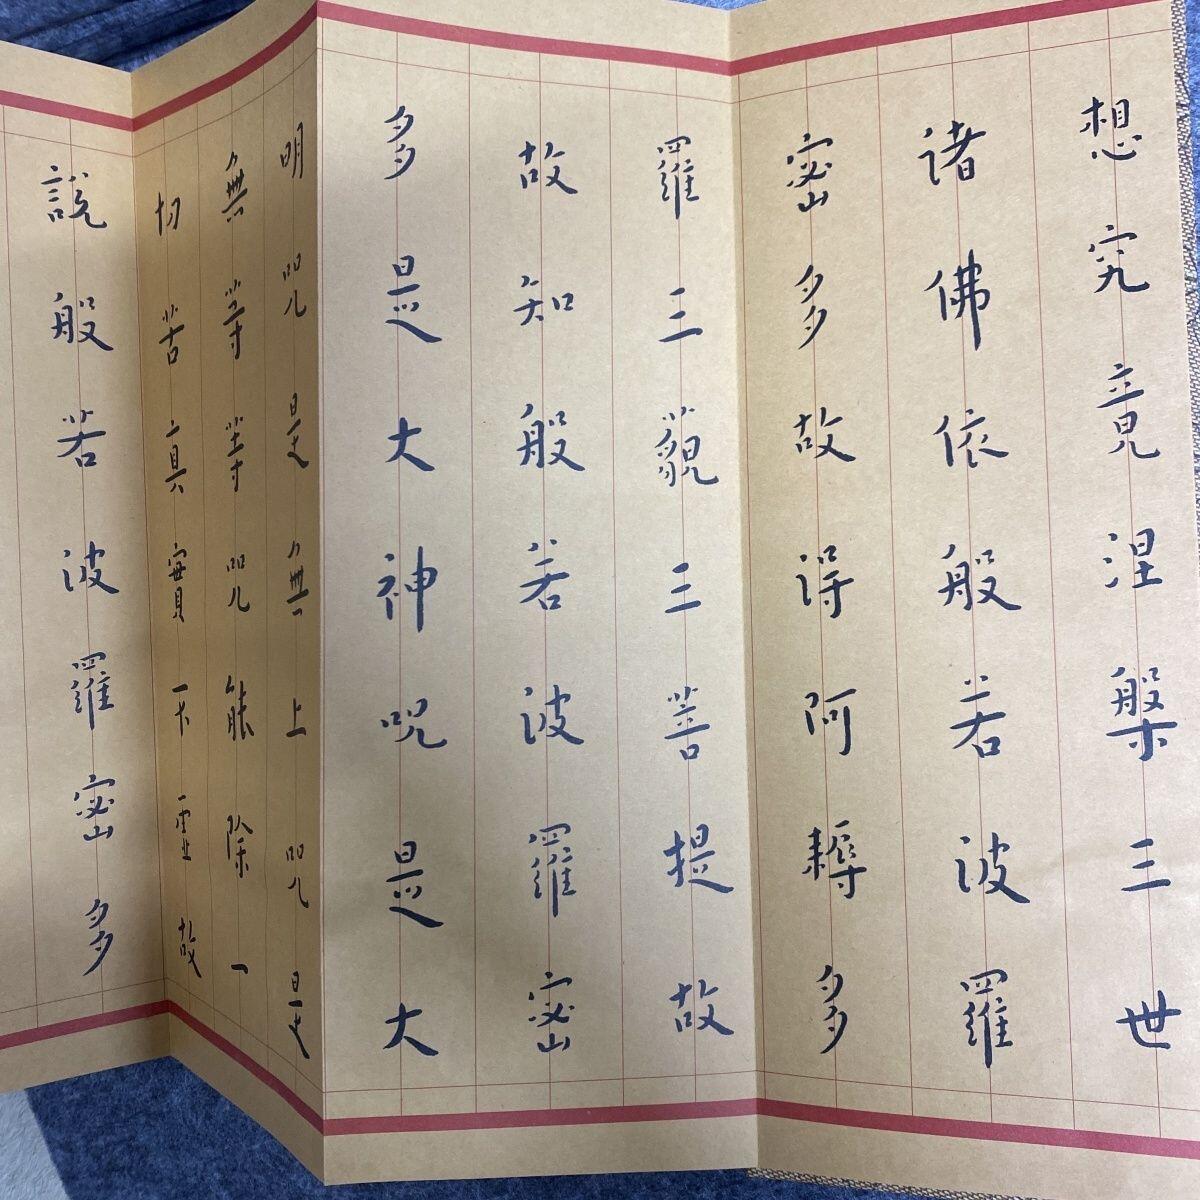 想究竟涅槃三世
諸佛依般若波羅
密多故得阿耨多
羅三藐三菩提故
故知般若波羅密
多是大神咒是大
明咒是無上咒是
無等等咒能除一
切苦真實不虛故
說般若波羅密多